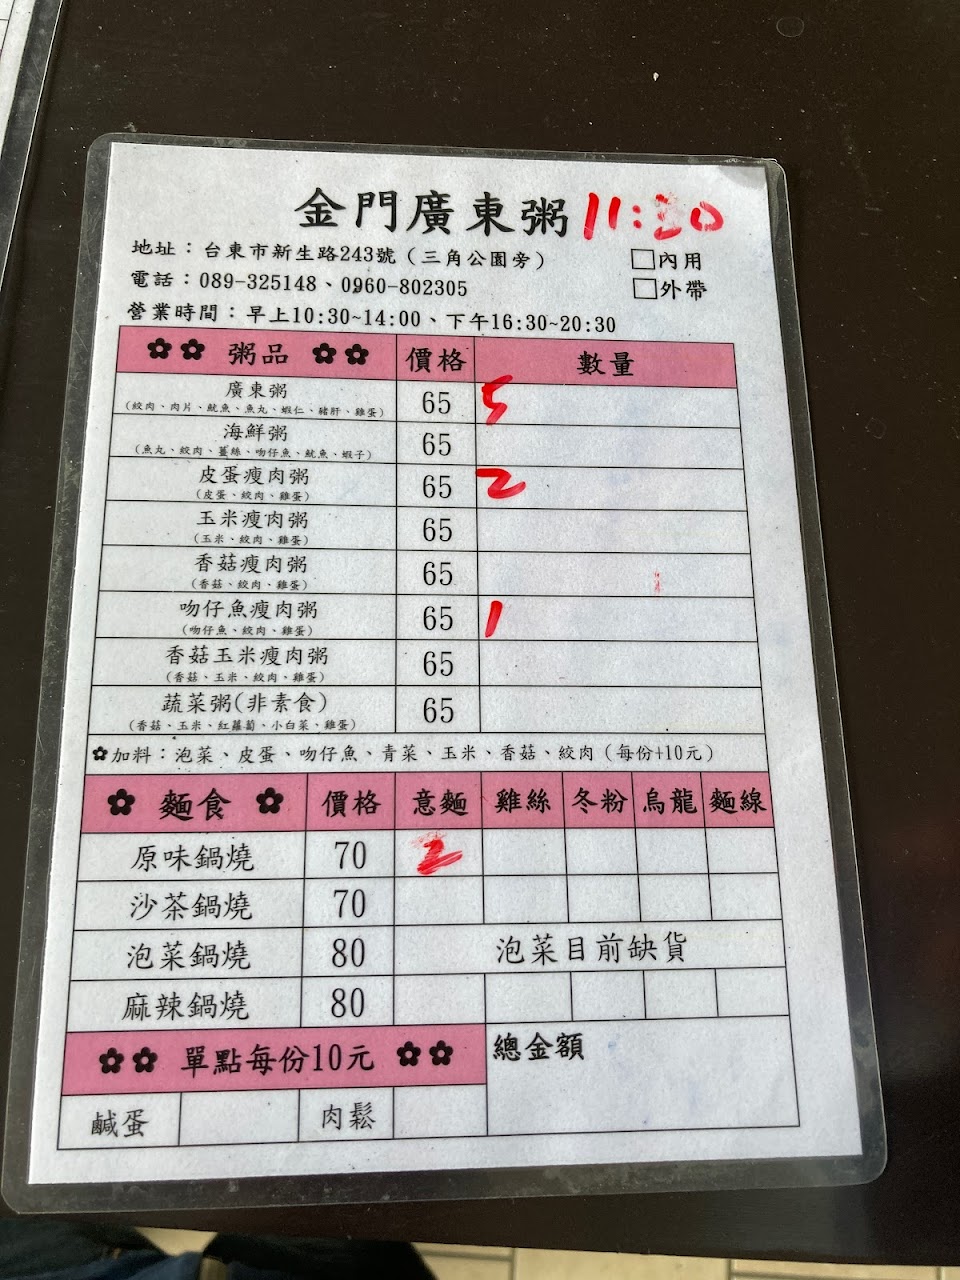 金門廣東粥 11:30
地址：台東市新生路243號（三角公園旁）
□內用
電話：089-325148、0960-802305
□外帶
營業時間：早上10:30~14:00、下午16:30~20:30
✿✿ 粥品 ✿✿ 價格 數量
廣東粥 65 5
（絞肉、肉片、魷魚、魚丸、蝦仁、豬肝、雞蛋）
海鮮粥 65
（魚丸、絞肉、薑絲、吻仔魚、魷魚、蝦子）
皮蛋瘦肉粥 65 2
（皮蛋、絞肉、雞蛋）
玉米瘦肉粥 65
（玉米、絞肉、雞蛋）
香菇瘦肉粥 65
（香菇、絞肉、雞蛋）
吻仔魚瘦肉粥 65 1
（吻仔魚、絞肉、雞蛋）
香菇玉米瘦肉粥 65
（香菇、玉米、絞肉、雞蛋）
蔬菜粥(非素食) 65
（香菇、玉米、紅蘿蔔、小白菜、雞蛋）
✿加料：泡菜、皮蛋、吻仔魚、青菜、玉米、香菇、絞肉（每份+10元）
✿ 麵食 ✿ 價格 意麵 雞絲 冬粉 烏龍 麵線
原味鍋燒 70 2
沙茶鍋燒 70
泡菜鍋燒 80 泡菜目前缺貨
麻辣鍋燒 80
✿✿ 單點每份10元 ✿✿ 總金額
鹹蛋 肉鬆